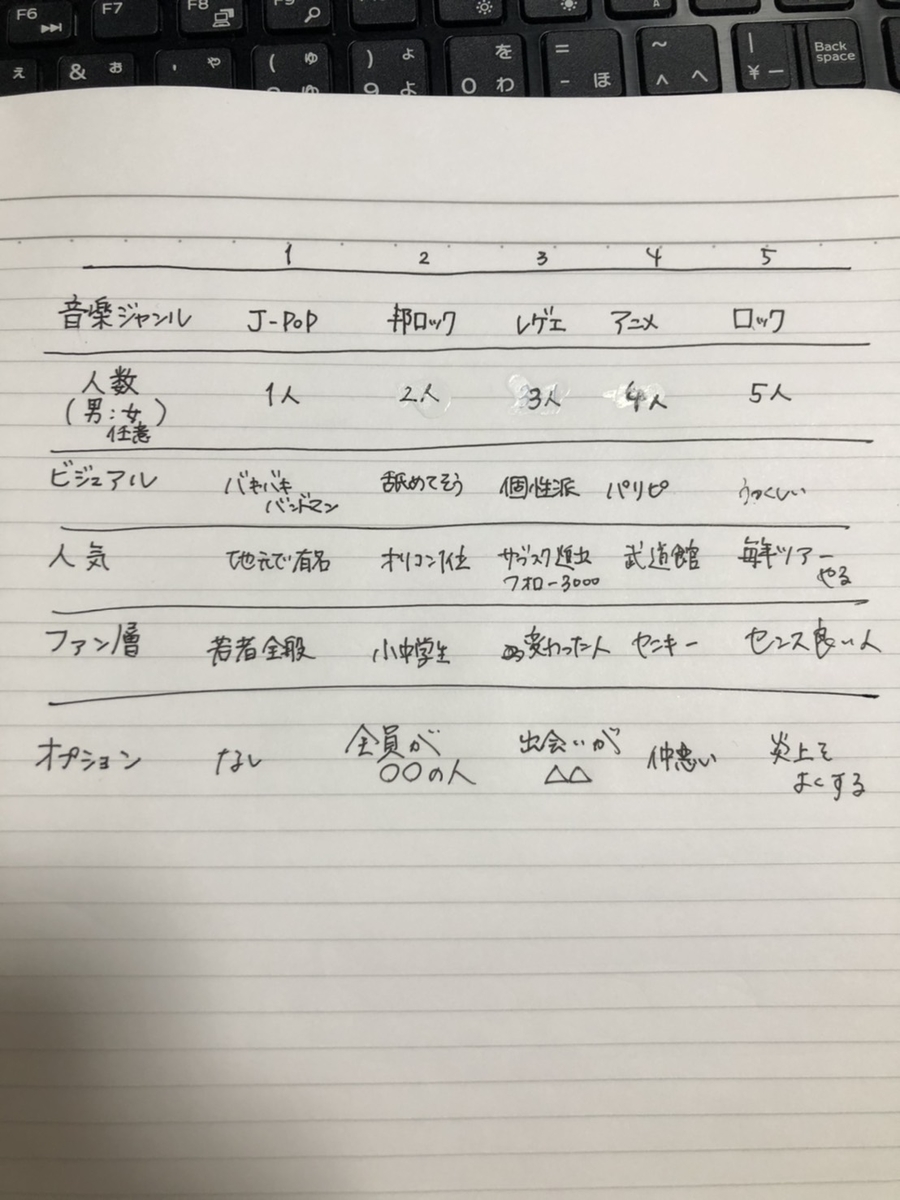 F6 F7 F8 F9
ぇ & ぉ ' ゃ ( ゅ ) ょ を = ~ | Back
ゆ 9 よ 0 わ - ほ ^ へ ¥ ー space
1 2 3 4 5
音楽ジャンル J-POP 邦ロック レゲエ アニメ ロック
人数 1人 2人 3人 4人 5人
(男:女)
任意
ビジュアル バキバキ 舐めてそう 個性派 パリピ うつくしい
バンドマン
人気 地元で有名 オリコン1位 サブスク進出 武道館 毎年ツアー
フォロー3000 やる
ファン層 若者全般 小中学生 変わった人 ヤンキー センス良い人
オプション なし 全員が 出会いが 仲悪い 炎上を
〇〇の人 △△ よくする